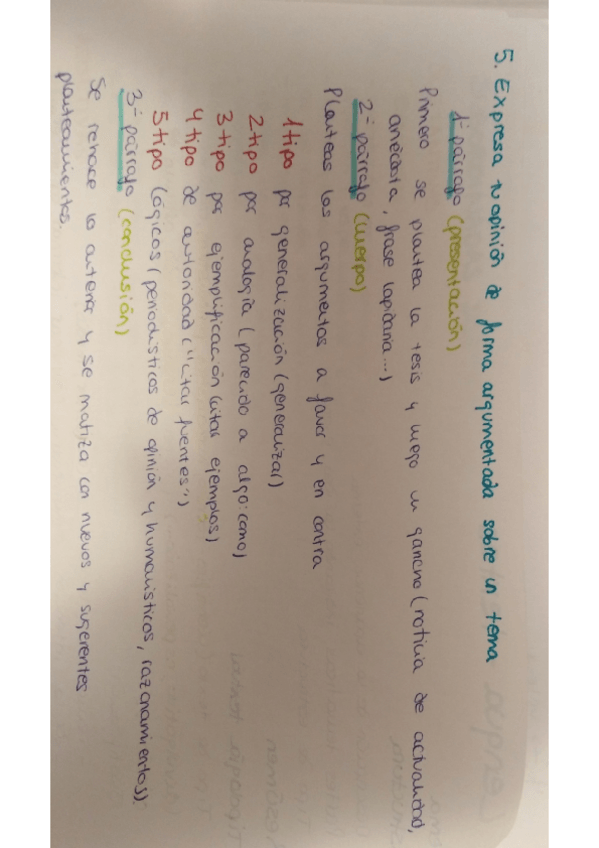 5. Expresa tu opinión de forma argumentada sobre un tema
1º párrafo (presentación)
Primero se plantea la tesis y luego un gancho (noticia de actualidad,
anécdota, frase lapidaria...)
2º párrafo (cuerpo)
Planteas los argumentos a favor y en contra
1 tipo por generalización (generalizar)
2 tipo por analogía (parecido a algo: como)
3 tipo por ejemplificación (citar ejemplos)
4 tipo de autoridad ("citar fuentes")
5 tipo lógicos (periodísticos de opinión y humanísticos, razonamientos).
3º párrafo (conclusión)
Se rehace lo anterior y se matiza con nuevos y sugerentes
planteamientos.